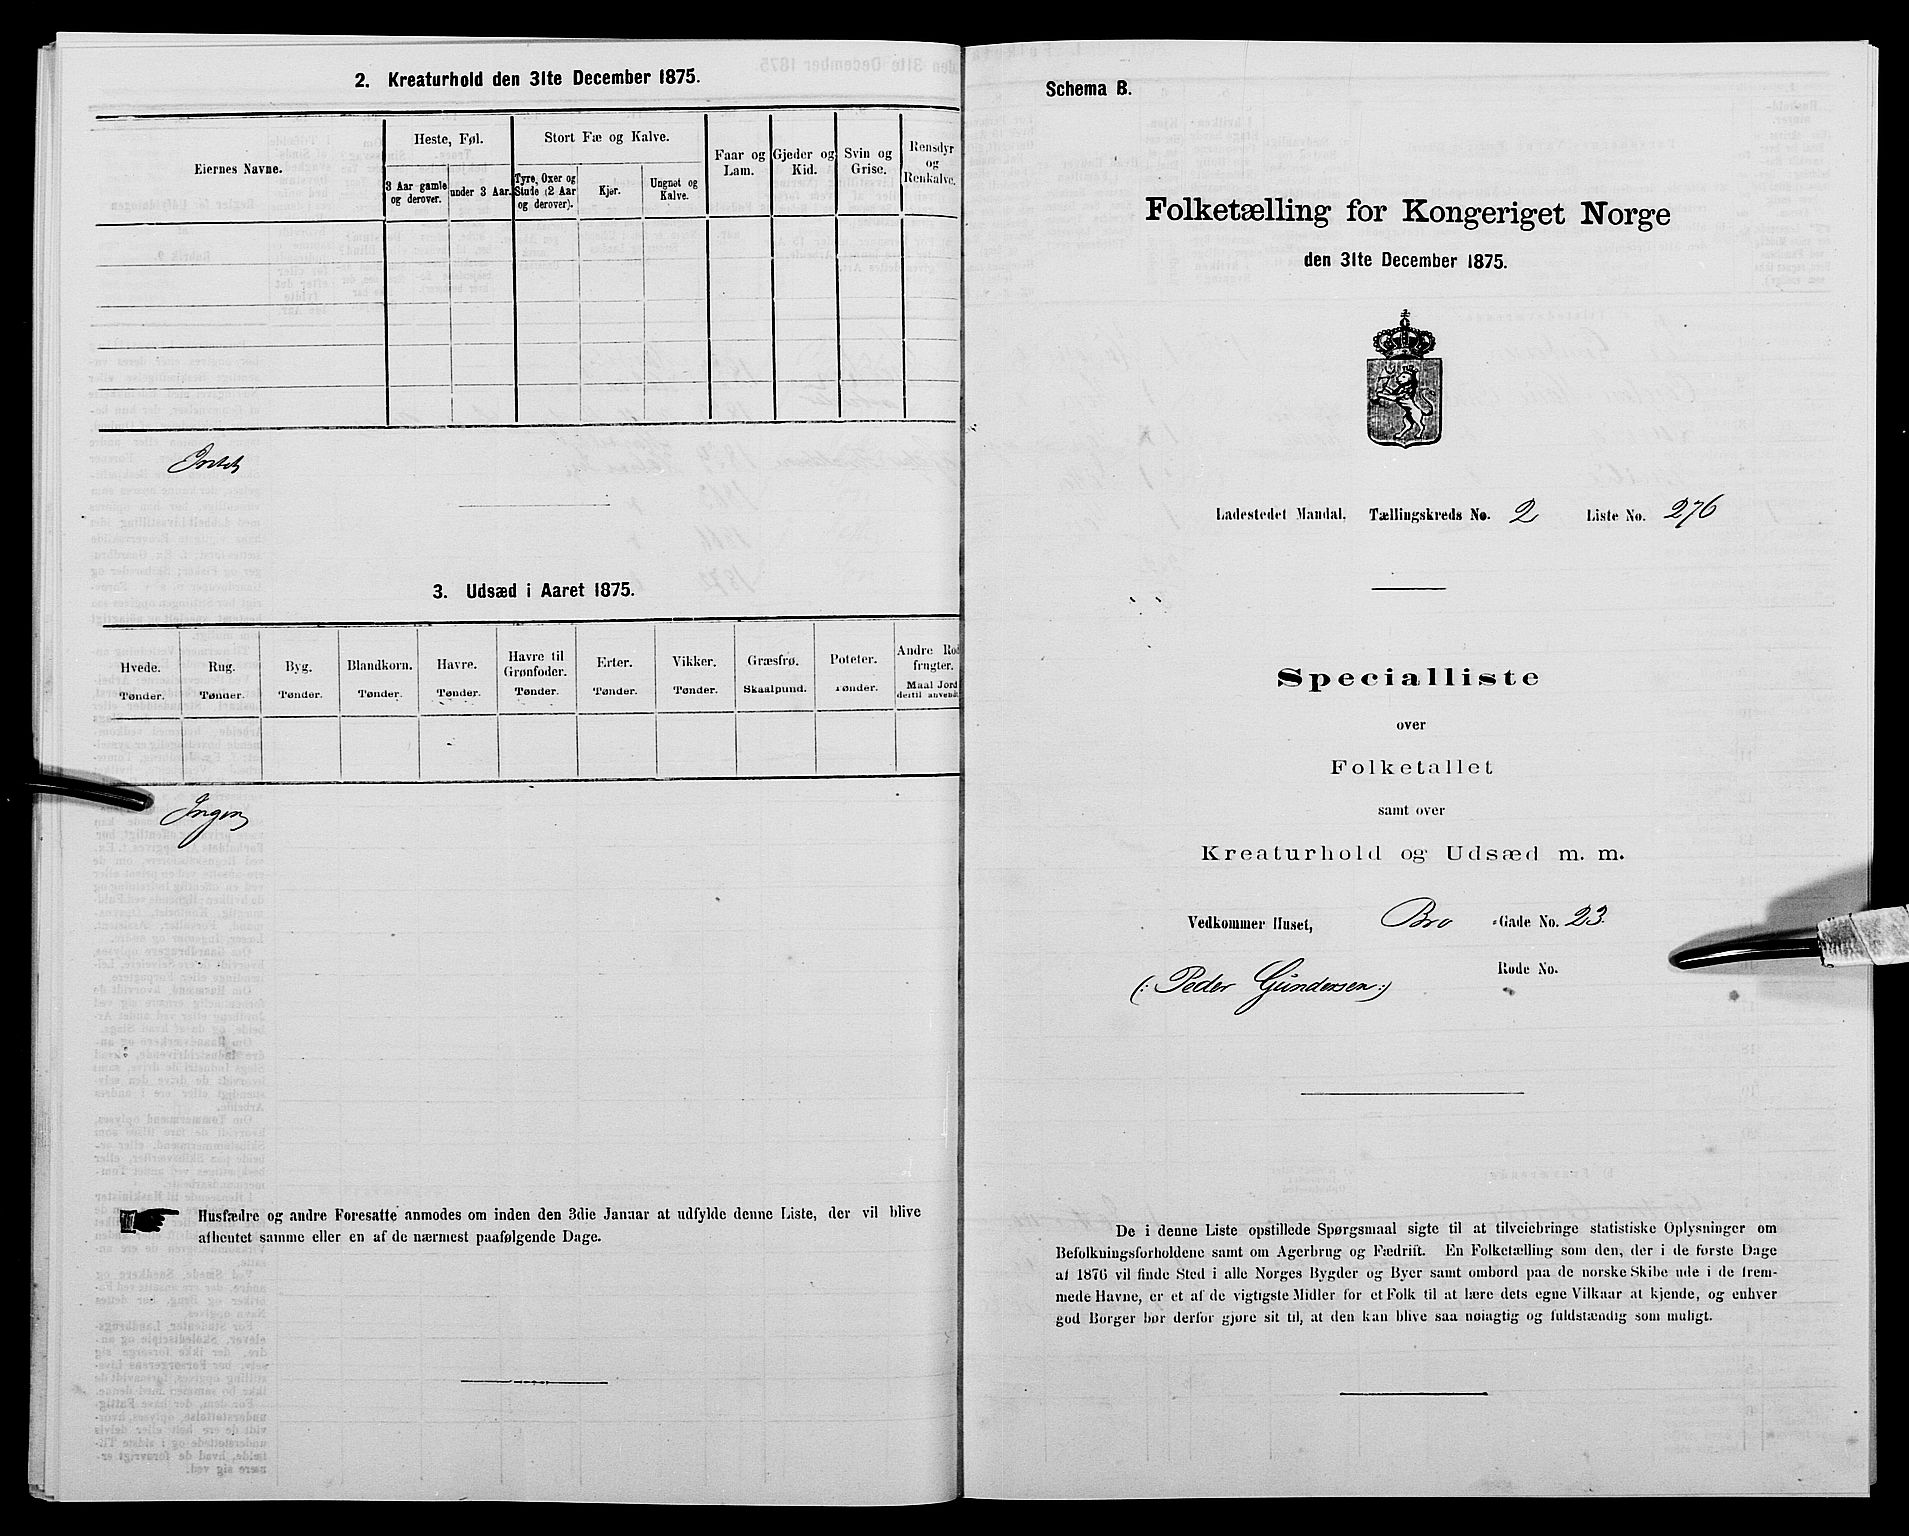 2. Kreaturhold den 31te December 1875.
Eiernes Navne.
Heste, Føl.
3 Aar gamle og derover.
under 3 Aar.
Stort Fæ og Kalve.
Tyre, Oxer og Stude (2 Aar og derover).
Kjør.
Ungnøt og Kalve.
Faar og Lam.
Gjeder og Kid.
Svin og Grise.
Rensdyr og Renkalve.
Intet
3. Udsæd i Aaret 1875.
Hvede. Tønder.
Rug. Tønder.
Byg. Tønder.
Blandkorn. Tønder.
Havre. Tønder.
Havre til Grønfoder. Tønder.
Erter. Tønder.
Vikker. Tønder.
Græsfrø. Skaalpund.
Poteter. Tønder.
Andre Rod frugter. Maal Jord dertil anvendt
Ingen
Husfædre og andre Foresatte anmodes om inden den 3die Januar at udfylde denne Liste, der vil blive
afhentet samme eller en af de nærmest paafølgende Dage.
Schema B.
Folketælling for Kongeriget Norge
den 31te December 1875.
Ladestedet Mandal. Tællingskreds No. 2 Liste No. 276
Specialliste
over
Folketallet
samt over
Kreaturhold og Udsæd m. m.
Vedkommer Huset, Bro -Gade No. 23.
Rode No.
(: Peder Gundersen :)
De i denne Liste opstillede Spørgsmaal sigte til at tilveiebringe statistiske Oplysninger om
Befolkningsforholdene samt om Agerbrug og Fædrift. En Folketælling som den, der i de første Dage
af 1876 vil finde Sted i alle Norges Bygder og Byer samt ombord paa de norske Skibe ude i de frem-
mede Havne, er et af de vigtigste Midler for et Folk til at lære dets egne Vilkaar at kjende, og enhver
god Borger bør derfor gjøre sit til, at den kan blive saa nøiagtig og fuldstændig som muligt.